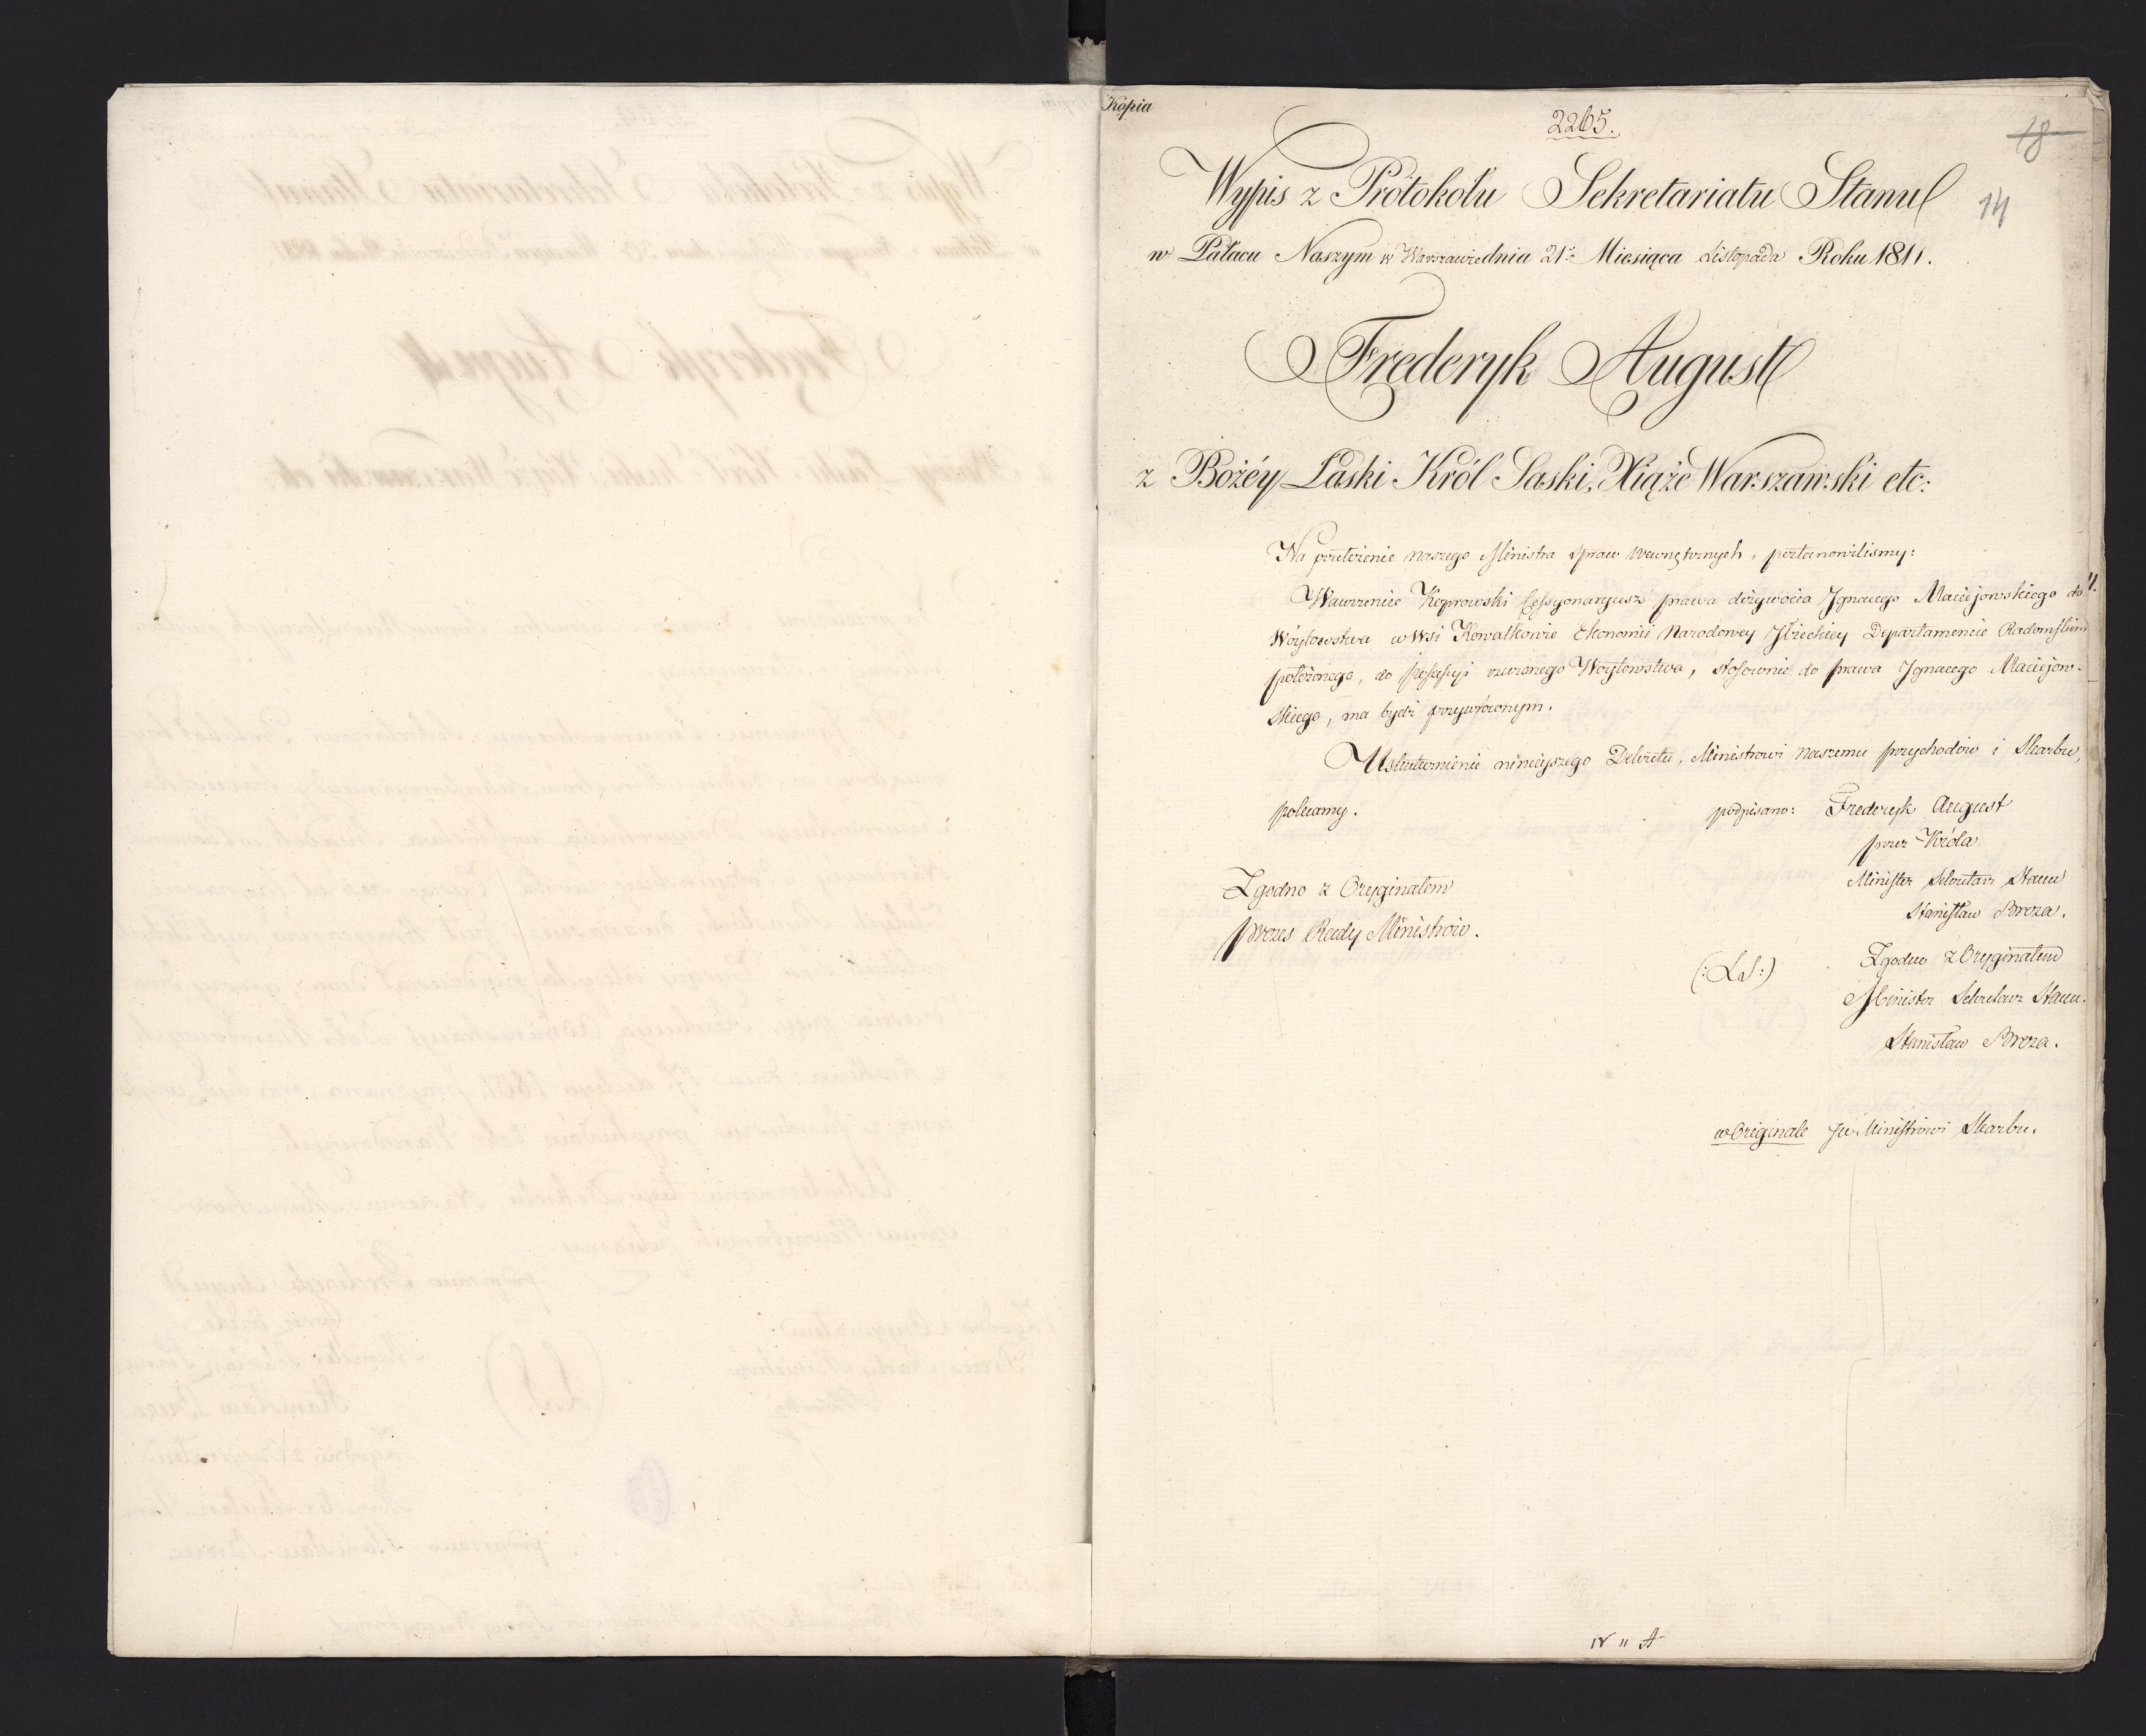 Kopia
2265.
18
14
Wypis z Protokołu Sekretariatu Stanu
w Pałacu Naszym w Warszawie dnia 21o Miesiąca Listopada Roku 1811.
Frederyk August
z Bożéy Łaski Król Saski, Xiąże Warszawski etc:
Na przełożenie naszego Ministra spraw wewnętrznych, postanowiliśmy:
Wawrzeniec Koprowski Cessyonaryusz prawa dożywocia Ignacego Maciejowskiego do
Wóytowstwa w Wsi Kowalkowie Ekonomii Narodowey Iłżeckiey Departamencie Radomskim
położonego, do possessyi rzeczonego Woytowstwa, stosownie do prawa Ignacego Maciejow-
skiego, ma bydź przywróconym.
Uskutecznienie ninieyszego Dekretu, Ministrowi Naszemu przychodów i Skarbu,
polecamy.
podpisano: Frederyk August
przez Króla
Minister Sekretarz Stanu
Stanisław Breza.
Zgodno z Oryginałem
Prezes Rady Ministrów.
(: L.S :)
Zgodno z Oryginałem
Minister Sekretarz Stanu.
Stanisław Breza.
w Originale JW Ministrowi Skarbu.